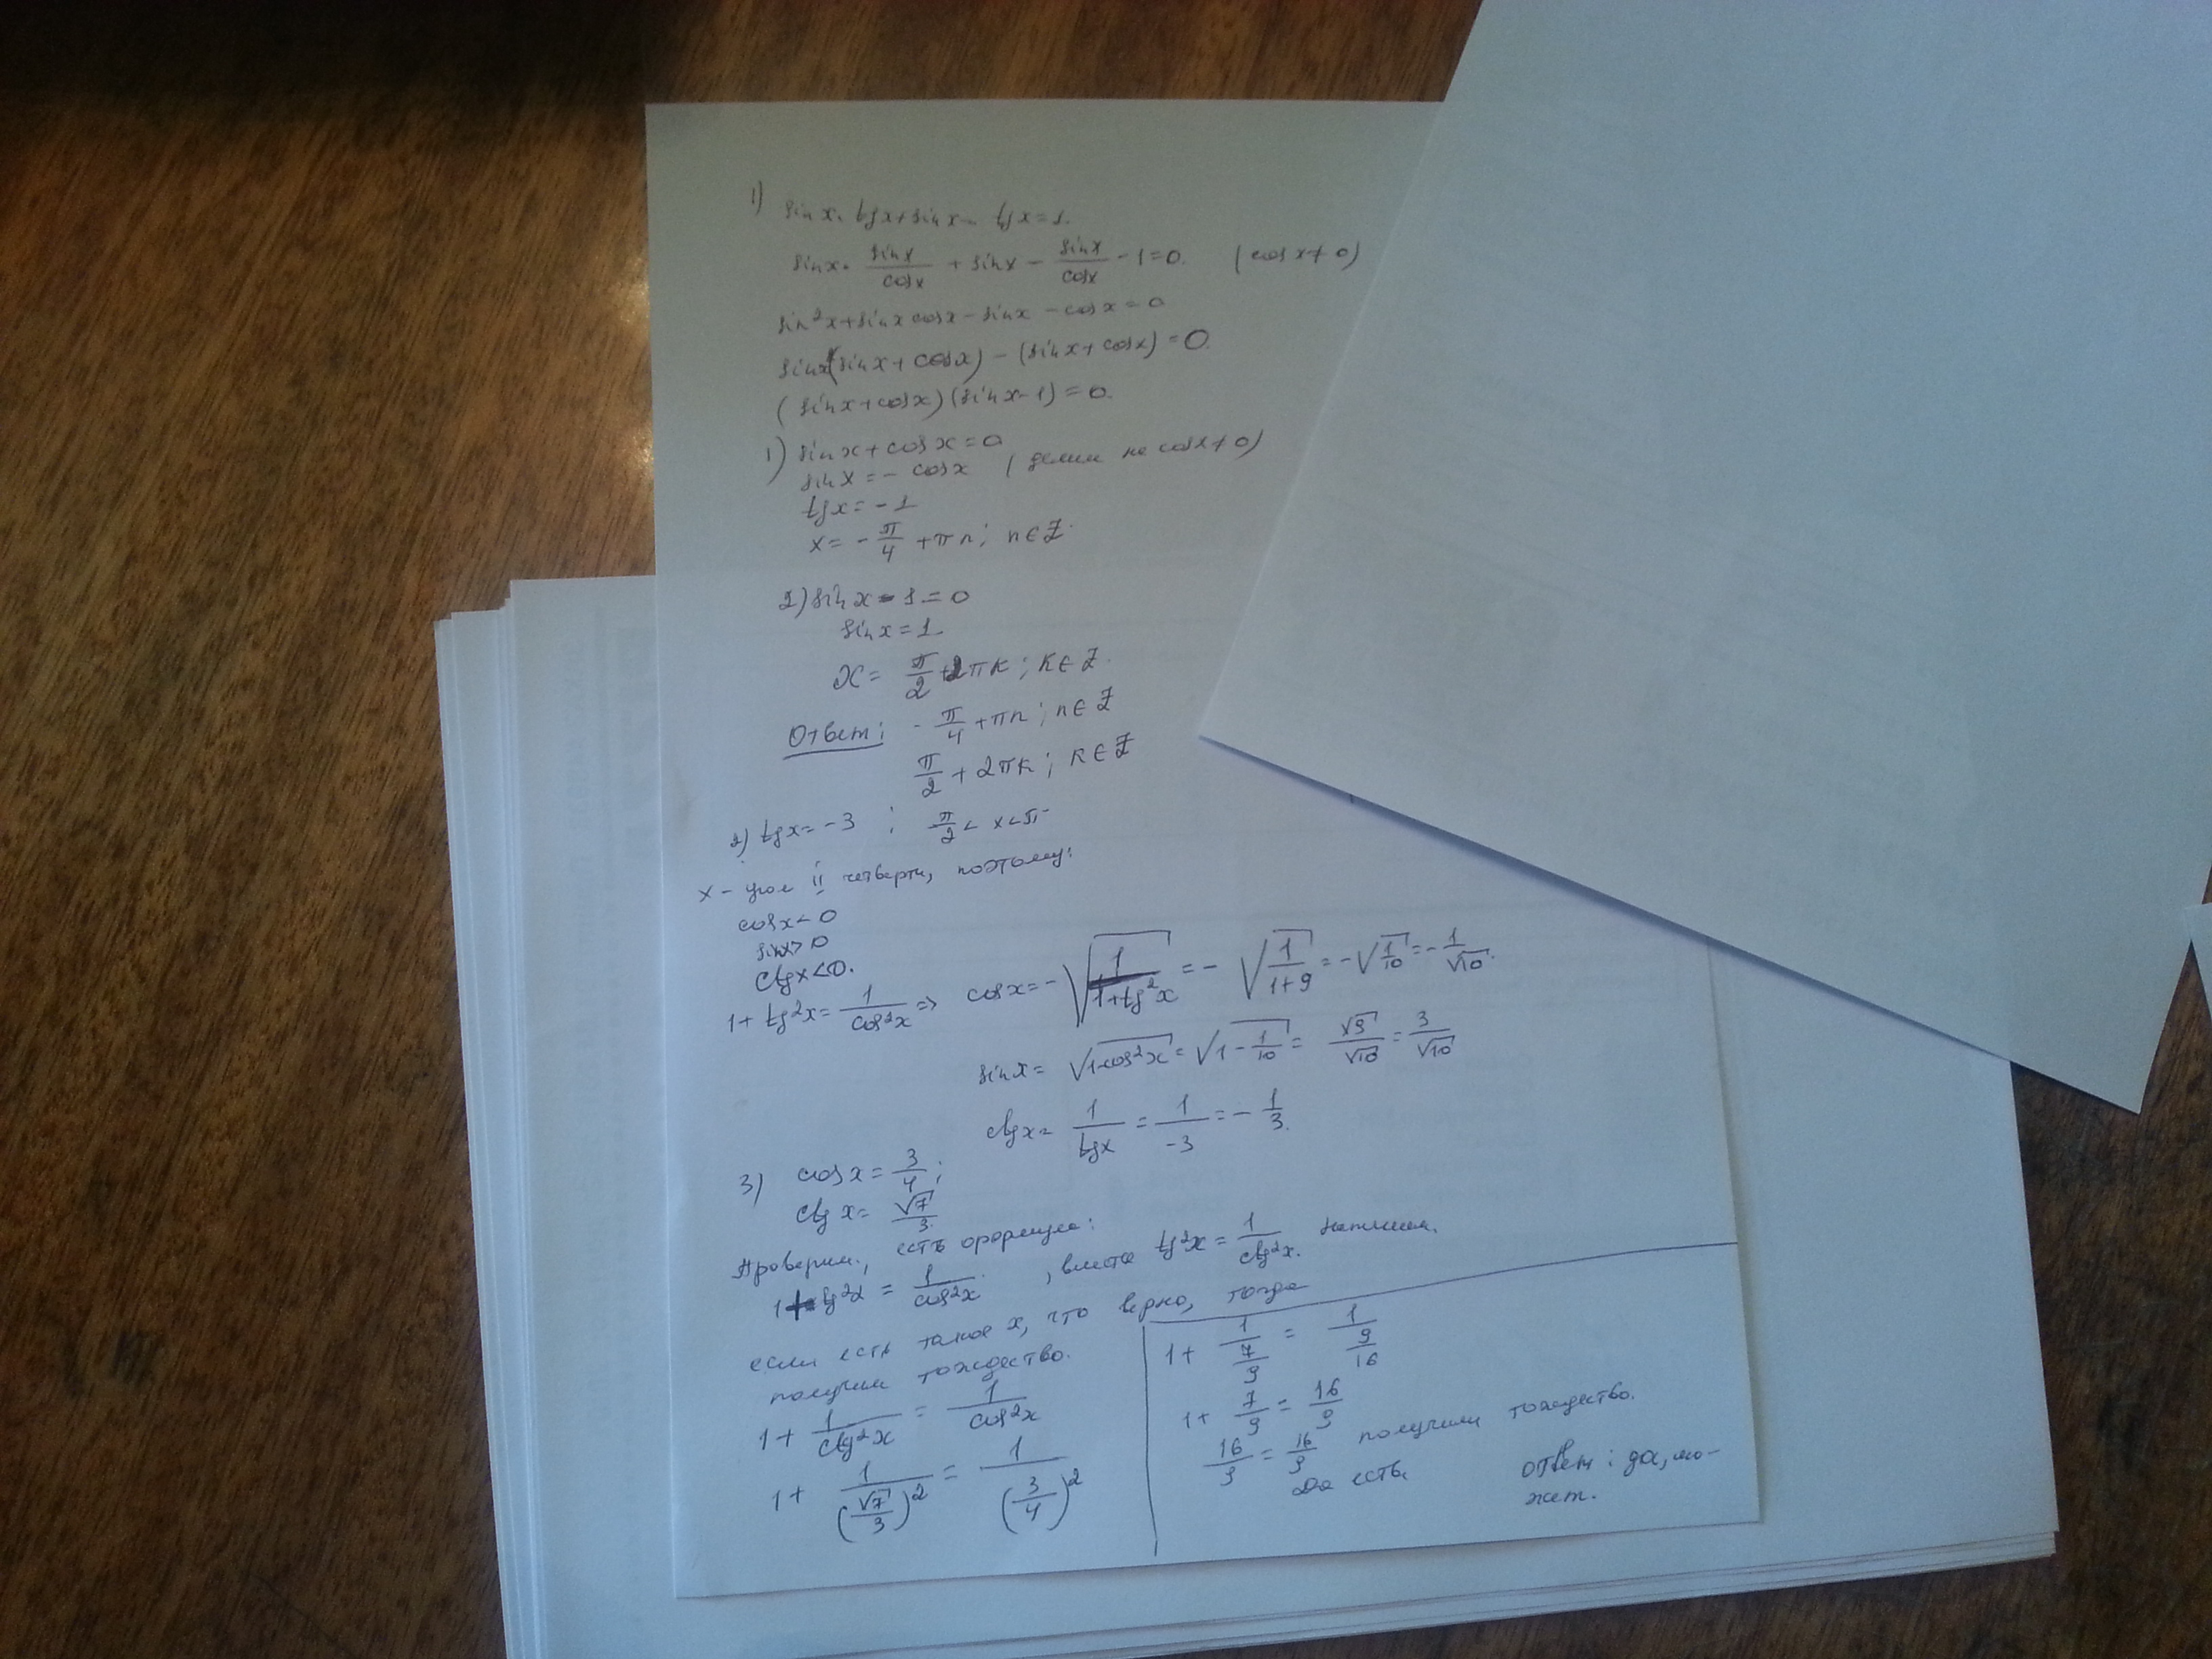 1) sin x · tg x + sin x − tg x = 1.
sin x · sin x / cos x + sin x − sin x / cos x − 1 = 0. (cos x ≠ 0)
sin²x + sin x cos x − sin x − cos x = 0
sin x (sin x + cos x) − (sin x + cos x) = 0.
(sin x + cos x)(sin x − 1) = 0.
1) sin x + cos x = 0
sin x = − cos x (делим на cos x ≠ 0)
tg x = − 1
x = − π/4 + πn; n ∈ Z.
2) sin x − 1 = 0
sin x = 1
x = π/2 + 2πk; k ∈ Z.
Ответ: − π/4 + πn; n ∈ Z
π/2 + 2πk; k ∈ Z
2) tg x = −3 ; π/2 < x < π
x − угол II четверти, поэтому:
cos x < 0
sin x > 0
ctg x < 0.
1 + tg²x = 1/cos²x => cos x = − √(1/(1+tg²x)) = − √(1/(1+9)) = − √(1/10) = − 1/√10.
sin x = √(1−cos²x) = √(1 − 1/10) = √9/√10 = 3/√10
ctg x = 1/tg x = 1/−3 = − 1/3.
3) cos x = 3/4;
ctg x = √7/3.
Проверим, есть формула:
1 + tg²x = 1/cos²x , вместо tg²x = 1/ctg²x. напишем.
если есть такое x, что верно, тогда
получим тождество.
1 + 1/ctg²x = 1/cos²x
1 + 1/(√7/3)² = 1/(3/4)²
1 + 1/(7/9) = 1/(9/16)
1 + 7/9 = 16/9
16/9 = 16/9 получили тождество.
Да есть
ответ: да, мо-
жет.